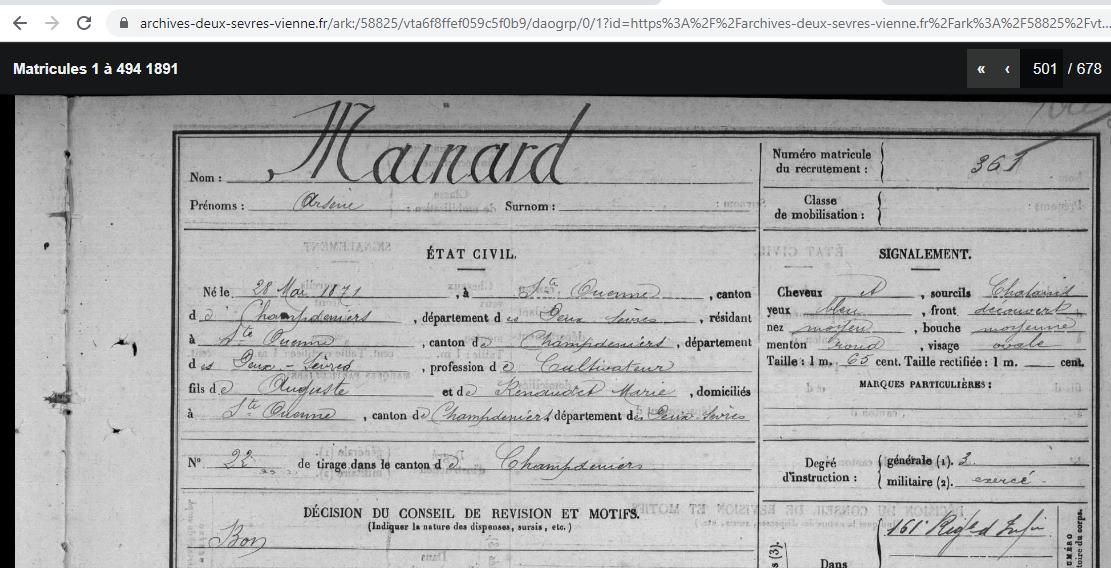 archives-deux-sevres-vienne.fr/ark:/58825/vta6f8ffef059c5f0b9/daogrp/0/1?id=https%3A%2F%2Farchives-deux-sevres-vienne.fr%2Fark%3A%2F58825%2Fvt...
Matricules 1 à 494 1891
« ‹ 501 / 678
Nom : Mainard
Prénoms : Arsène Surnom :
Numéro matricule du recrutement : 361
Classe de mobilisation :
ÉTAT CIVIL.
Né le 28 Mai 1871, à Ste Ouenne, canton
de Champdeniers, département des Deux Sèvres, résidant
à Ste Ouenne, canton de Champdeniers, département
des Deux-Sèvres, profession de Cultivateur
fils de Auguste et de Marie, domiciliés
à Ste Ouenne, canton de Champdeniers département des Deux-Sèvres
N° 22 de tirage dans le canton de Champdeniers
DÉCISION DU CONSEIL DE REVISION ET MOTIFS.
(Indiquer la nature des dispenses, sursis, etc.)
Bon
SIGNALEMENT.
Cheveux et, sourcils Chatains
yeux bleu, front découvert
nez moyen, bouche moyenne
menton rond, visage ovale
Taille : 1 m. 65 cent. Taille rectifiée : 1 m. cent.
MARQUES PARTICULIÈRES :
Degré d'instruction : générale (1). 3
militaire (2). exercé
161e Regt d'Infie
Dans
s (3).
NUMÉRO
toire du corps.